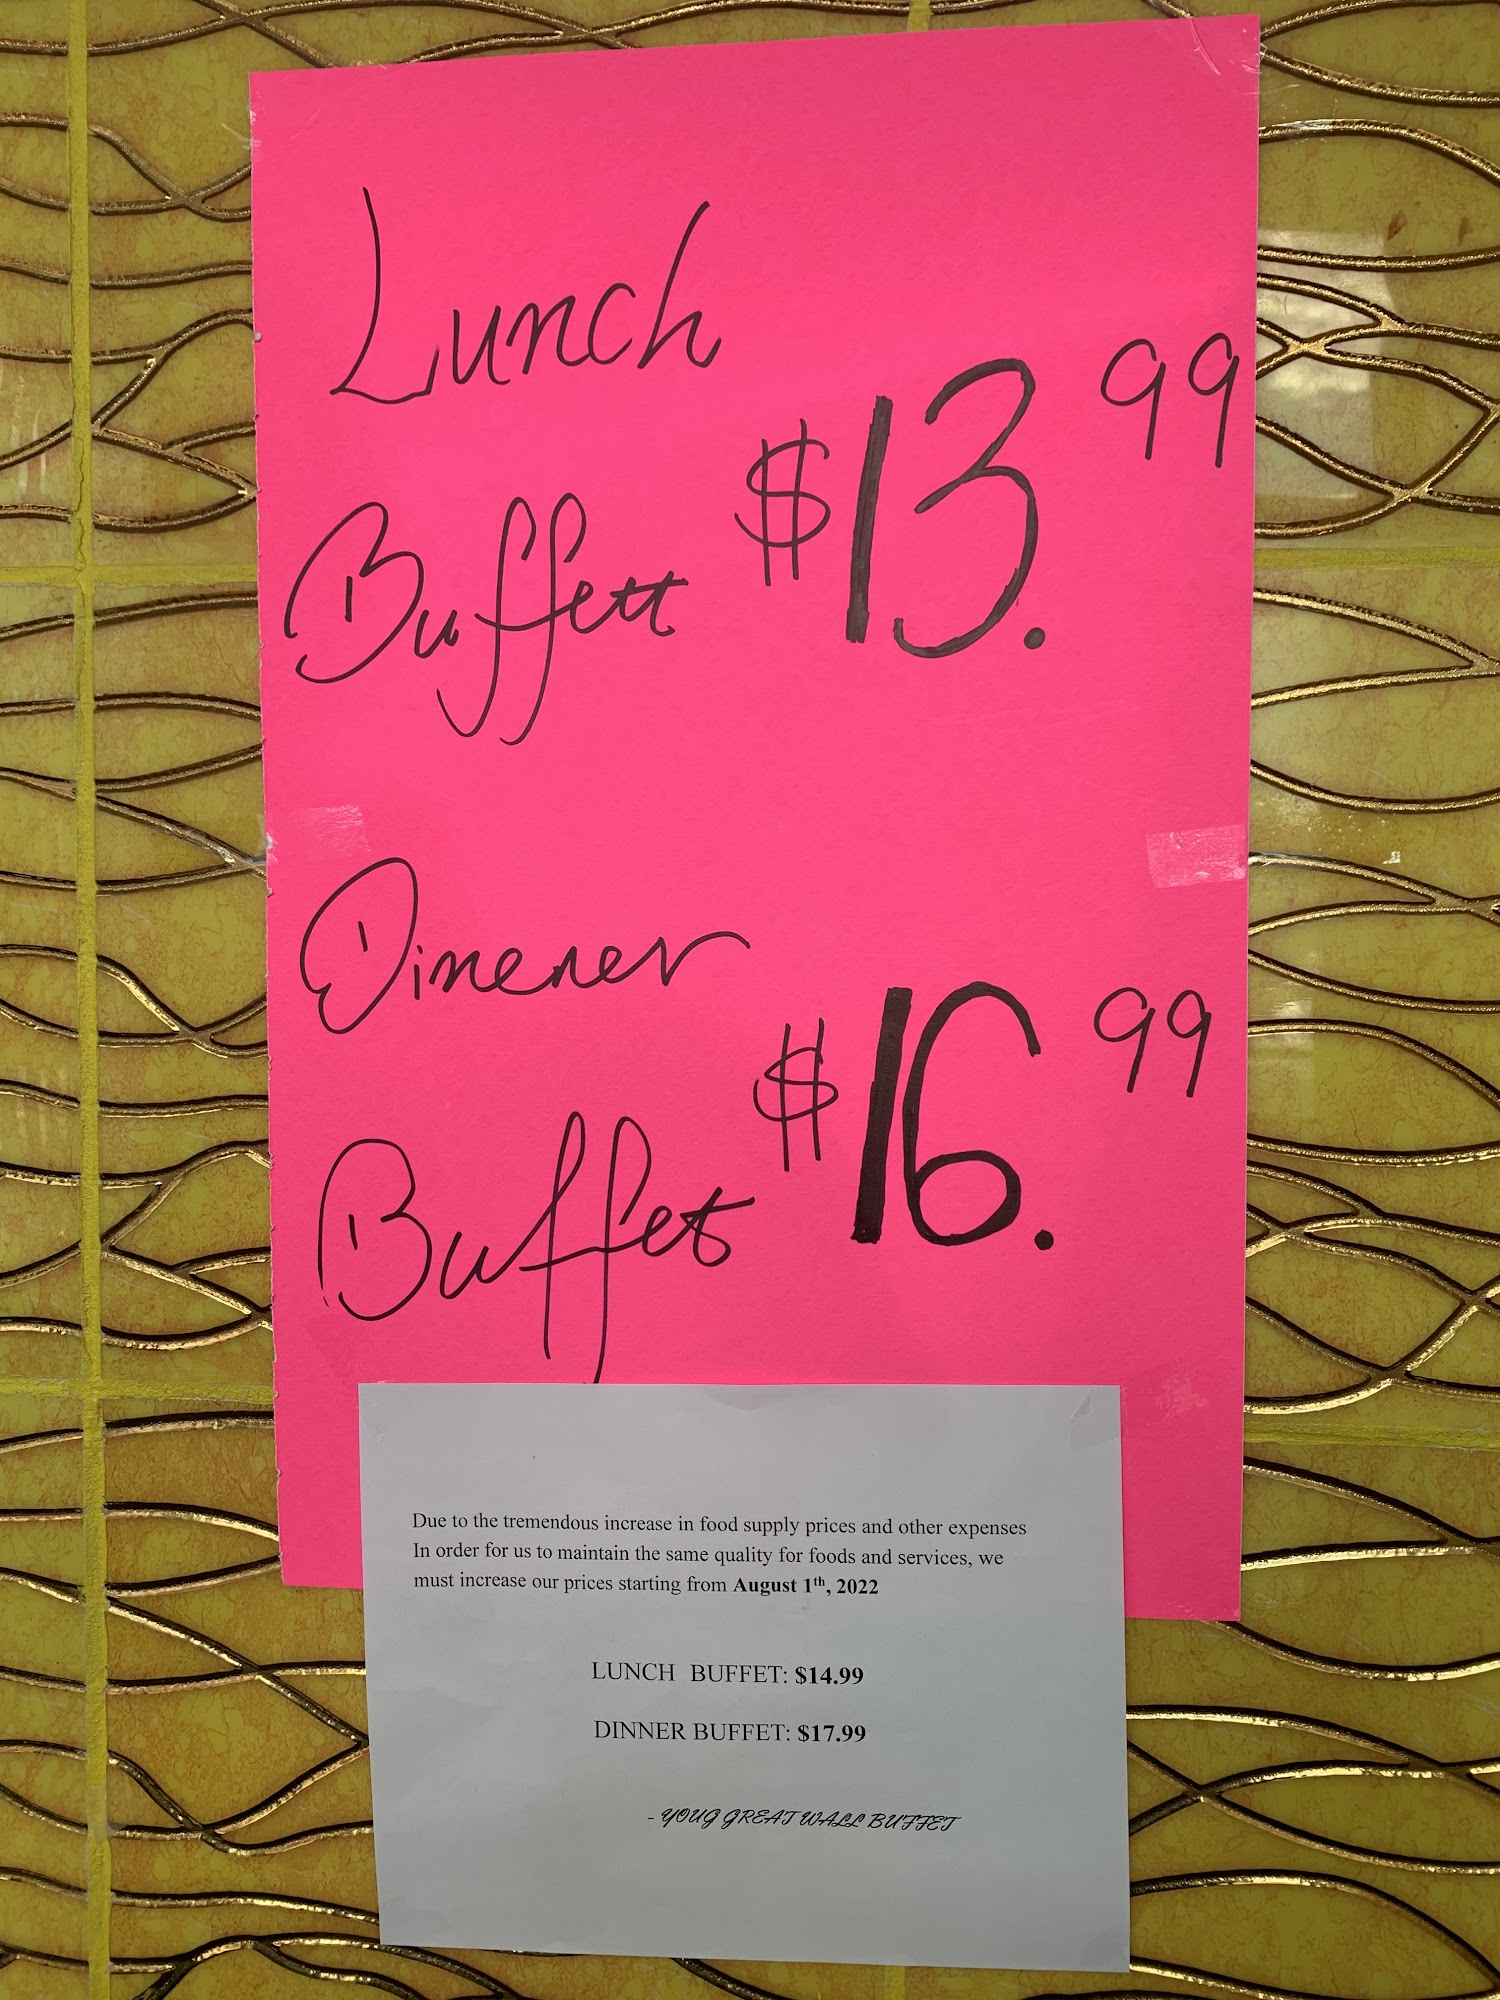 Lunch
Buffett $13.99
Dinener
Buffet $16.99
Due to the tremendous increase in food supply prices and other expenses
In order for us to maintain the same quality for foods and services, we
must increase our prices starting from August 1th, 2022
LUNCH BUFFET: $14.99
DINNER BUFFET: $17.99
- YOUG GREAT WALL BUFFET